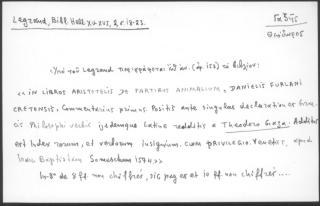 Legrand, Bibl. Hell. XV-XVI, 2, σ. 18-23.
Γαζῆς
Θεόδωρος
Ὑπὸ τοῦ Legrand περιγράφεται ὑπ' ἀρ. (153) τὸ βιβλίον:
«IN LIBROS ARISTOTELIS DE PARTIBUS ANIMALIUM, DANIELIS FURLANI
CRETENSIS, Commentarius primus Positis ante singulas declarationes Grae-
cis Philosophi verbis iisdemque Latine redditis a Theodoro Gaza. Additus
est Index rerum, et verborum insignium. CUM PRIVILEGIO. VENETIIS, apud
Ioan. Baptistam Somaschum 1574»
In-8° de 8 ff. non chiffrés, pages et 10 ff. non chiffrés....